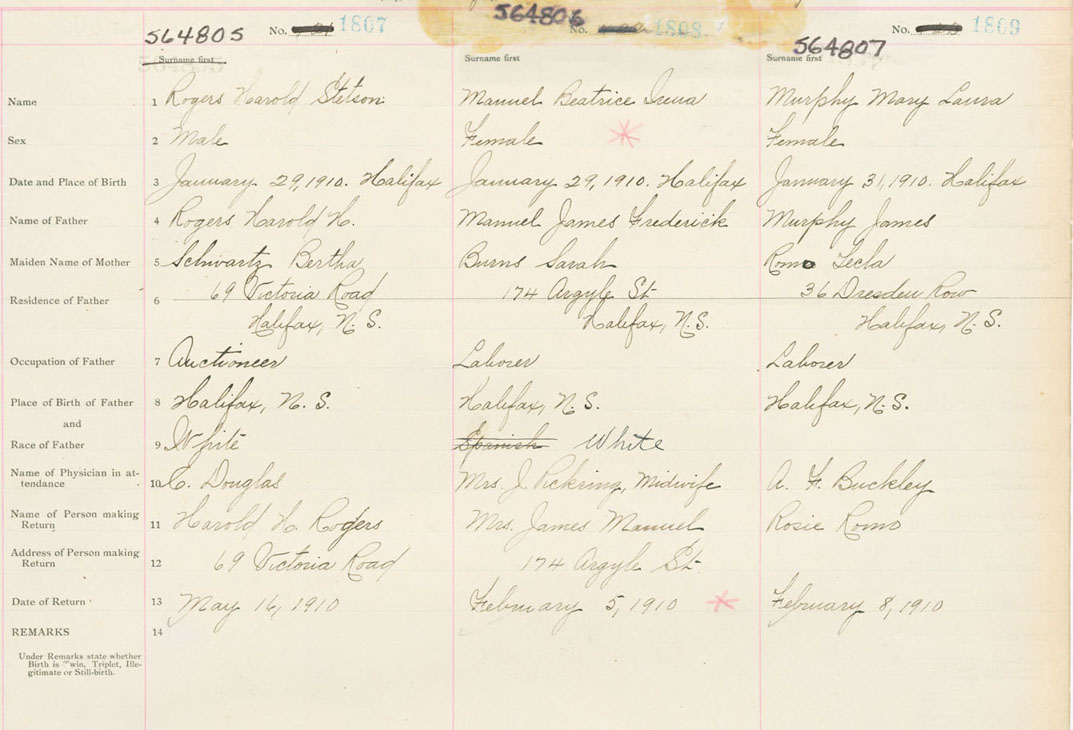 564805 No. 1807 564806 No. 1808 564807 No. 1809
Surname first Surname first Surname first
Name 1 Rogers Harold Stetson Manuel Beatrice Irena Murphy Mary Laura
Sex 2 Male Female Female
Date and Place of Birth 3 January 29, 1910. Halifax January 29, 1910. Halifax January 31, 1910. Halifax
Name of Father 4 Rogers Harold H. Manuel James Frederick Murphy James
Maiden Name of Mother 5 Schwartz Bertha Burns Sarah Romo Tecla
Residence of Father 6 69 Victoria Road 174 Argyle St 36 Dresden Row
Halifax, N. S. Halifax, N. S. Halifax, N. S.
Occupation of Father 7 Auctioneer Laborer Laborer
Place of Birth of Father 8 Halifax, N. S. Halifax, N. S. Halifax, N. S.
and
Race of Father 9 White Spanish White
Name of Physician in at-
tendance 10 C. Douglas Mrs. J. Pickring, Midwife A. F. Buckley
Name of Person making
Return 11 Harold H. Rogers Mrs. James Manuel Rosie Romo
Address of Person making
Return 12 69 Victoria Road 174 Argyle St.
Date of Return 13 May 16, 1910 February 5, 1910 February 8, 1910
REMARKS 14
Under Remarks state whether
Birth is Twin, Triplet, Ille-
gitimate or Still-birth.